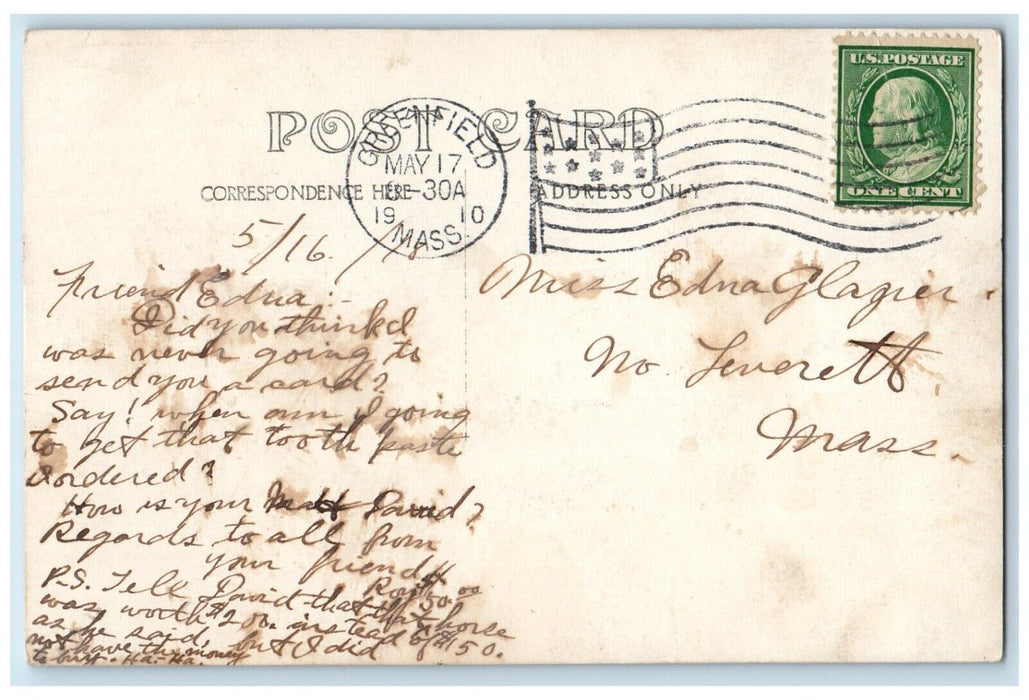 U.S. POSTAGE
ONE CENT
POST CARD
GREENFIELD
MAY 17
-30A
19 10
MASS.
CORRESPONDENCE HERE
ADDRESS ONLY
5/16.
Friend Edna:-
Did you think I
was never going to
send you a card?
Say! when am I going
to get that tooth paste
I ordered?
How is your David?
Regards to all from
your friend
P.S. Tell David that that horse
was worth $200. instead of $150.
as he said, but I did
not have the money
to bust. Ha-Ha.
Miss Edna Glazier.
No. Leverett,
Mass.